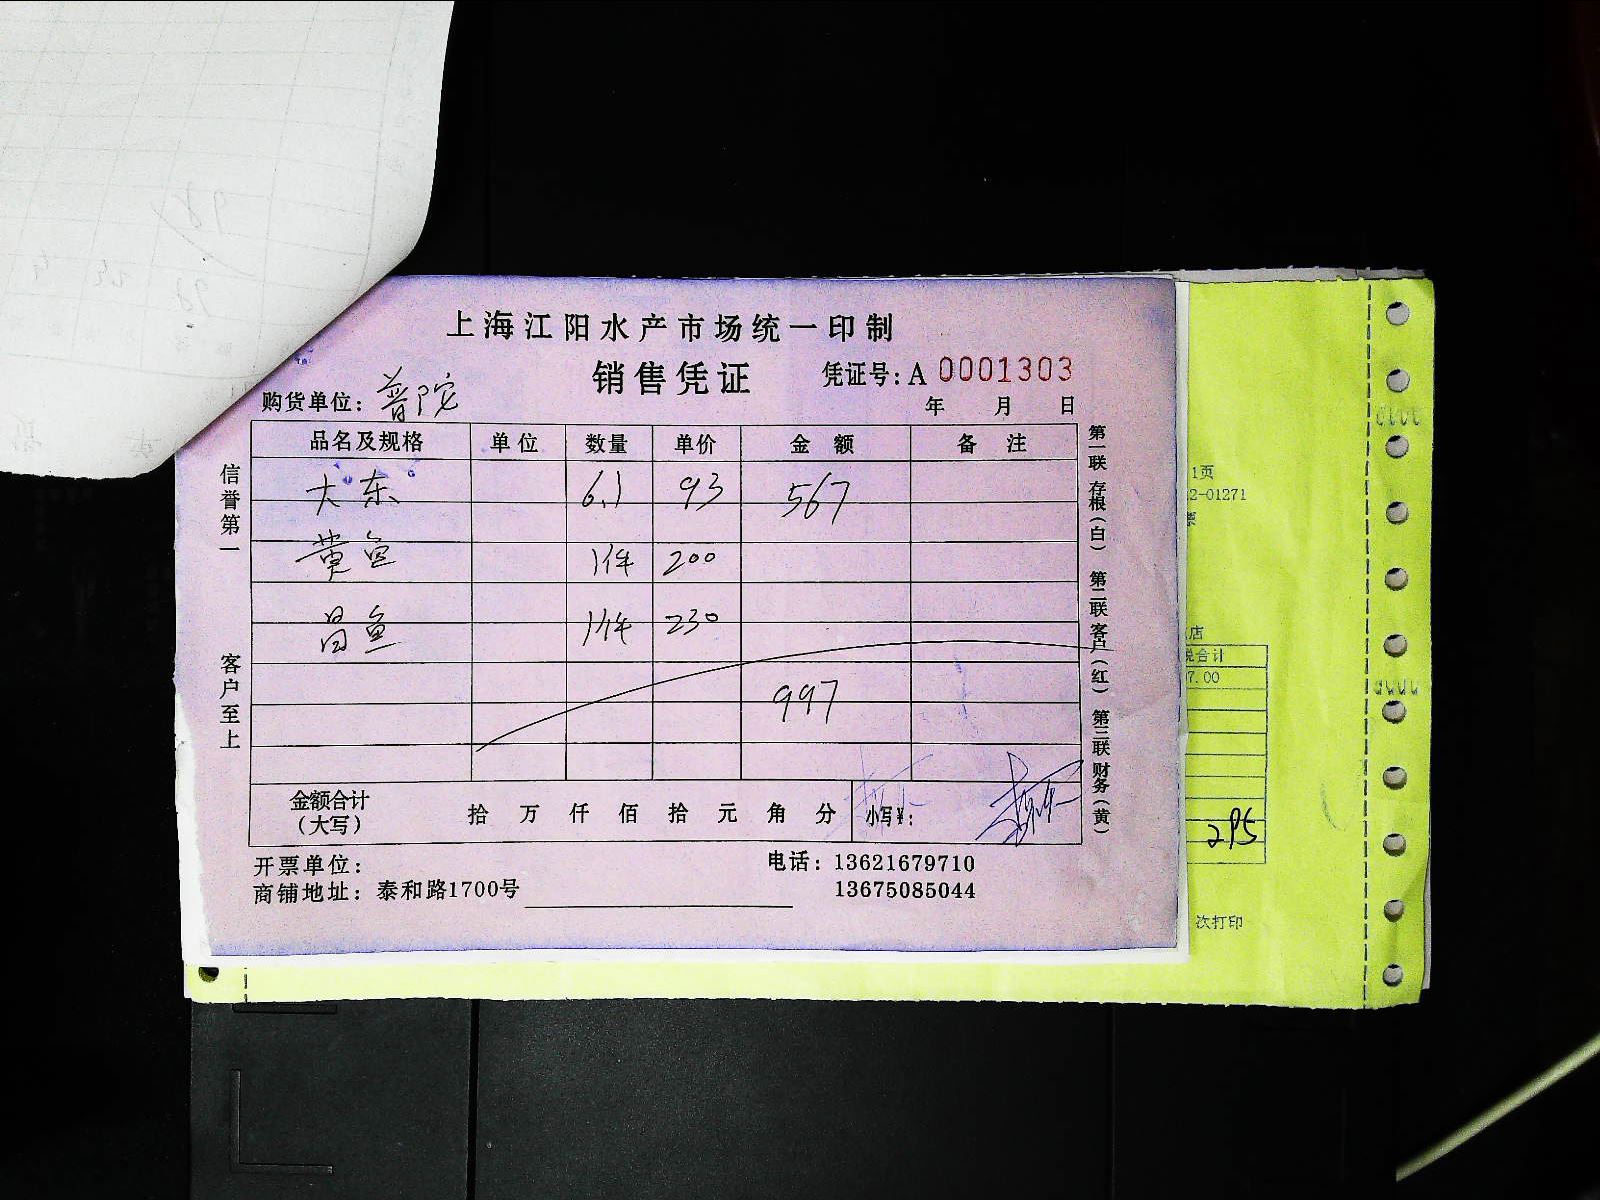 上海江阳水产市场统一印制
销售凭证
凭证号: A 0001303
购货单位: 普陀
年 月 日
品名及规格 单位 数量 单价 金额 备注
大东 6.1 93 567
黄鱼 1件 200
昌鱼 1件 230
997
金额合计(大写) 拾 万 仟 佰 拾 元 角 分 小写¥:
开票单位:
电话: 13621679710
商铺地址: 泰和路1700号
13675085044
信誉第一
客户至上
第一联 存根(白) 第二联 客户(红) 第三联 财务(黄)
1页
2-01271
店
税合计
7.00
295
次打印